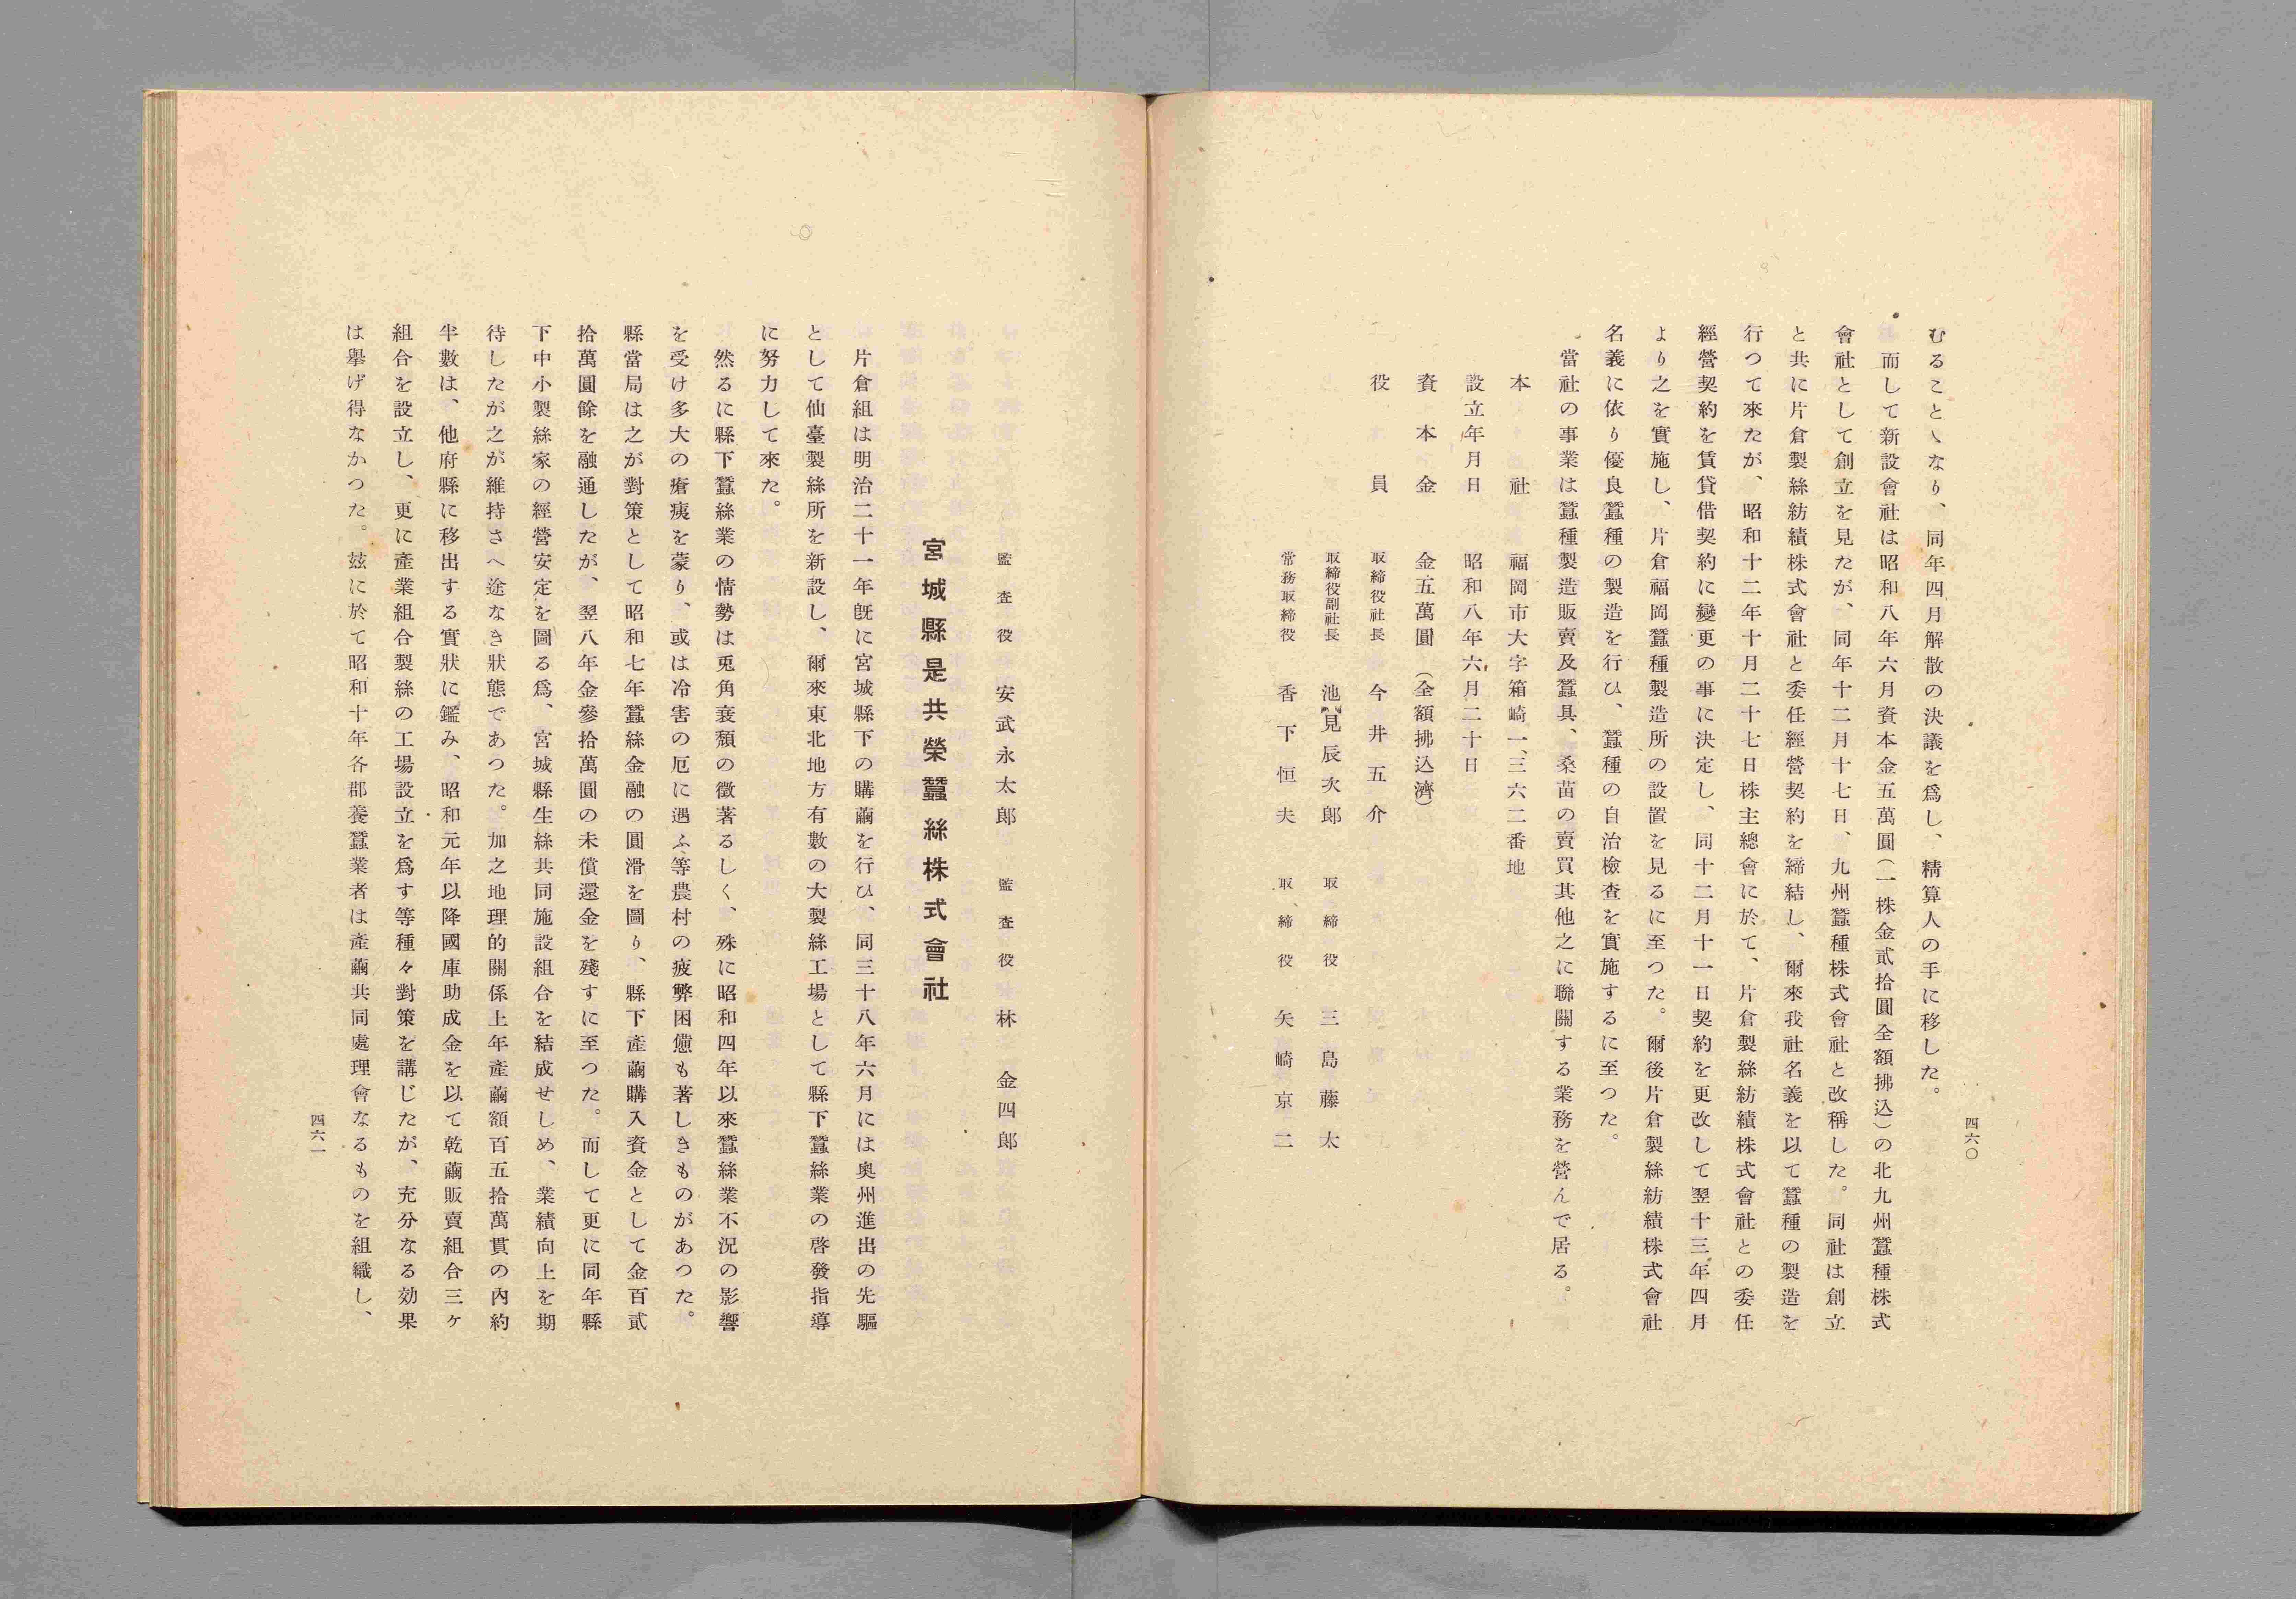 四六〇
むることゝなり、同年四月解散の決議を爲し、精算人の手に移した。
而して新設會社は昭和八年六月資本金五萬圓(一株金貳拾圓全額拂込)の北九州蠶種株式
會社として創立を見たが、同年十二月十七日、九州蠶種株式會社と改稱した。同社は創立
と共に片倉製絲紡績株式會社と委任經營契約を締結し、爾來我社名義を以て蠶種の製造を
行つて來たが、昭和十二年十月二十七日株主總會に於て、片倉製絲紡績株式會社との委任
經營契約を賃貸借契約に變更の事に決定し、同十二月十一日契約を更改して翌十三年四月
より之を實施し、片倉福岡蠶種製造所の設置を見るに至つた。爾後片倉製絲紡績株式會社
名義に依り優良蠶種の製造を行ひ、蠶種の自治檢查を實施するに至つた。
當社の事業は蠶種製造販賣及蠶具、桑苗の賣買其他之に聯關する業務を營んで居る。
本社 福岡市大字箱崎一、三六二番地
設立年月日 昭和八年六月二十日
資本金 金五萬圓(全額拂込濟)
役員 取締役社長 今井五介
取締役副社長 池見辰次郎 取締役 三島藤太
常務取締役 香下恒夫 取締役 矢崎京二
監査役 安武永太郎 監査役 林金四郎
宮城縣是共榮蠶絲株式會社
片倉組は明治二十一年旣に宮城縣下の購繭を行ひ、同三十八年六月には奧州進出の先驅
として仙臺製絲所を新設し、爾來東北地方有數の大製絲工場として縣下蠶絲業の啓發指導
に努力して來た。
然るに縣下蠶絲業の情勢は兎角衰頽の徵著るしく、殊に昭和四年以來蠶絲業不況の影響
を受け多大の瘡痍を蒙り、或は冷害の厄に遇ふ等農村の疲弊困憊も著しきものがあつた。
縣當局は之が對策として昭和七年蠶絲金融の圓滑を圖り、縣下產繭購入資金として金百貳
拾萬圓餘を融通したが、翌八年金參拾萬圓の未償還金を殘すに至つた。而して更に同年縣
下中小製絲家の經營安定を圖る爲、宮城縣生絲共同施設組合を結成せしめ、業績向上を期
待したが之が維持さへ途なき狀態であつた。加之地理的關係上年產繭額百五拾萬貫の內約
半數は、他府縣に移出する實狀に鑑み、昭和元年以降國庫助成金を以て乾繭販賣組合三ヶ
組合を設立し、更に產業組合製絲の工場設立を爲す等種々對策を講じたが、充分なる効果
は擧げ得なかつた。玆に於て昭和十年各郡養蠶業者は產繭共同處理會なるものを組織し、
四六一